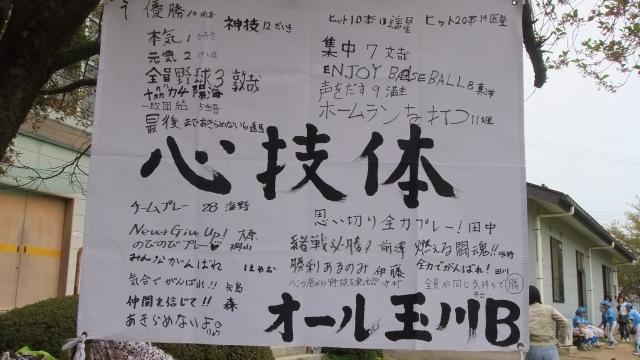 優勝10
神技12だいき
ヒット10本13遥星
ヒット20本14匠登
本気iひろき
集中7文哉
元気2けいま
ENJOY BASEBALL8真洋
全員野球3敦哉
声をだす9滋生
ガチ陽海
ホームランを打つ11
一致団結5
最後まであきらめない6
心技体
チームプレー 28 海野
思い切り全力プレー!田中
Never Give Up!
のびのびプレー 桐山
緒戦必勝! 前澤
燃える闘魂!!
みんながんばれ はやお
勝利あるのみ 伊藤
全力でがんばれ!田川
気合でがんばれ!! 矢島
心の底から野球を楽しめ
全員が同じ気持ちで勝
仲間を信じて!! 森
あきらめないよ。りょう
オール玉川B